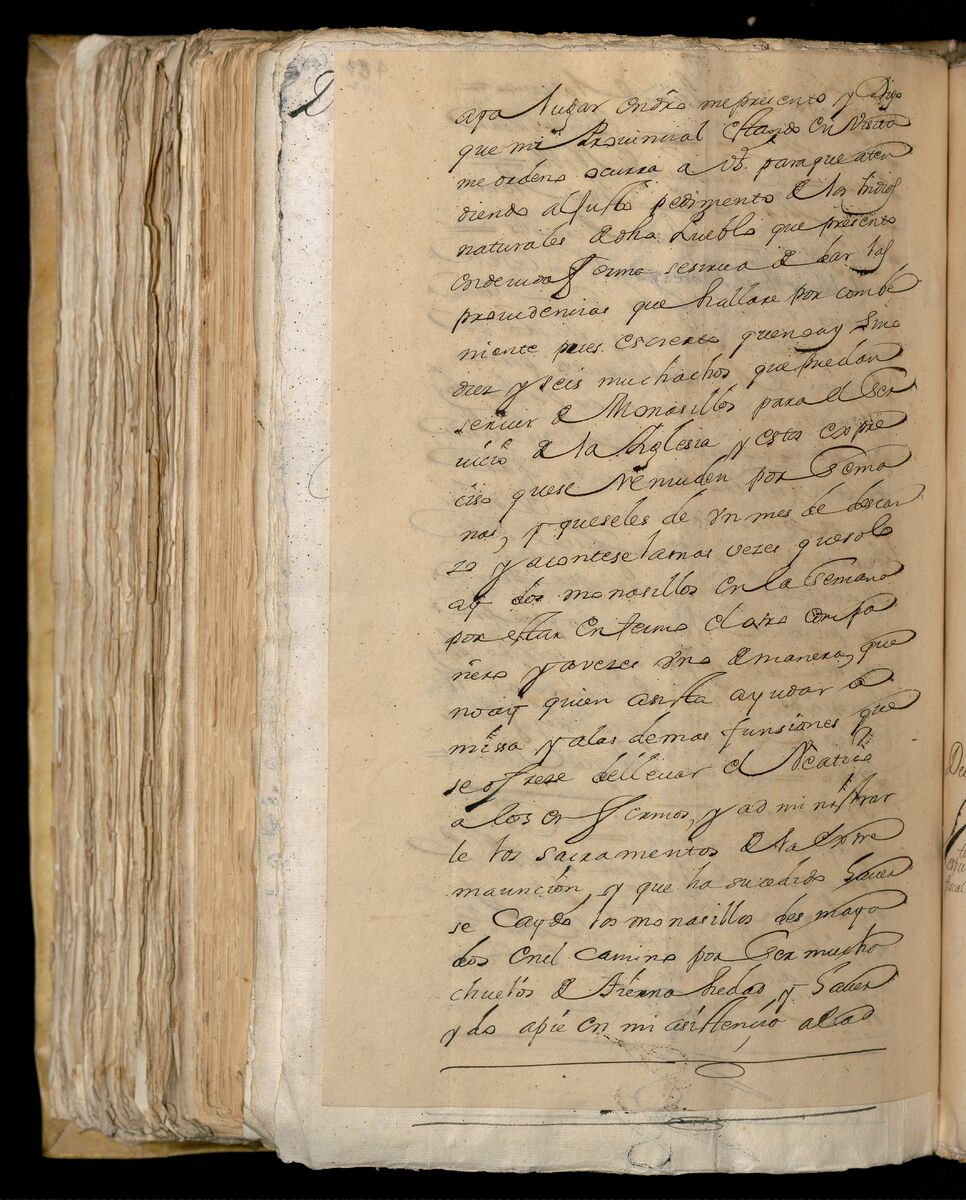 aya lugar en dro me presento y Digo
que mi Provincial estando en Visita
me ordeno ocurra a VS. para que aten
diendo al justo pedimento de los Indios
naturales de dho Pueblo que presento
en devida forma se sirva de dar las
providencias que hallare por combe
niente pues es cierto que no ay sino
diez y seis muchachos que puedan
servir de Monasillos para el Ser
vicio de la Yglesia y estos es pre
ciso que se remuden por Sema
nas, y que se les de vn mes de descan
zo y acontese las mas vezes que solo
ay dos monasillos en la Semana
por estar enfermo el otro compa
ñero y a vezes vno de manera, que
no ay quien asista ayudar a
missa y a las demas funsiones que
se ofreze de llevar el Veatico
a los enfermos, y ad ministrar
le los sacramentos de la extre
maunción, y que ha sucedido haver
se Caydo los monasillos desmaya
dos en el camino por Ser mucha
chuelos de tierna hedad y haver
ydo a pie en mi asistencia